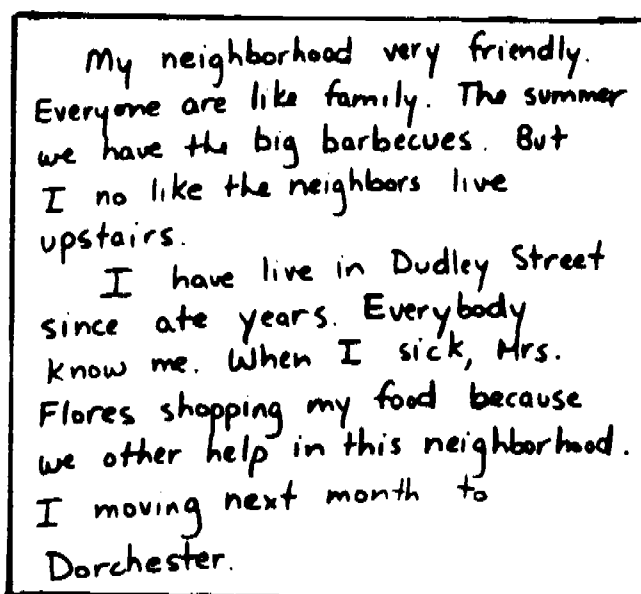 My neighborhood very friendly.
Everyone are like family. The summer
we have the big barbecues. But
I no like the neighbors live
upstairs.
I have live in Dudley Street
since ate years. Everybody
know me. When I sick, Mrs.
Flores shopping my food because
we other help in this neighborhood.
I moving next month to
Dorchester.